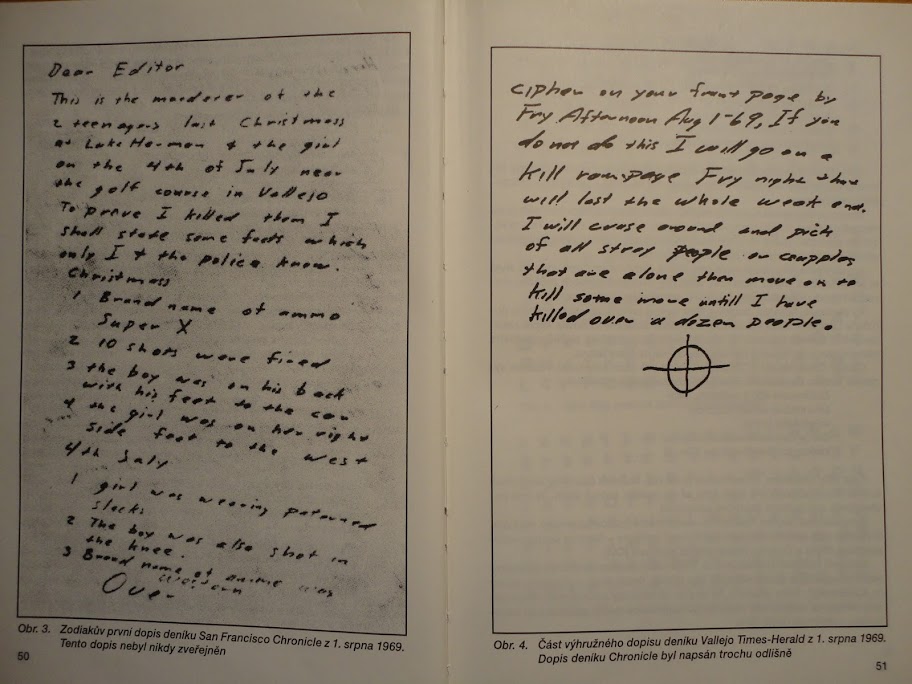 Dear Editor
This is the murderer of the
2 teenagers last Christmass
at Lake Herman & the girl
on the 4th of July near
the golf course in Vallejo
To prove I killed them I
shall state some facts which
only I & the police know.
Christmass
1 Brand name of ammo
Super X
2 10 shots were fired
3 the boy was on his back
with his feet to the car
4 the girl was on her right
side feet to the west
4th July
1 girl was wearing paterned
slacks
2 The boy was also shot in
the knee.
3 Brand name of ammo was
Western
Over
Obr. 3. Zodiakův první dopis deníku San Francisco Chronicle z 1. srpna 1969.
Tento dopis nebyl nikdy zveřejněn
50
cipher on your front page by
Fry Afternoon Aug 1-69, If you
do not do this I will go on a
kill rampage Fry night that
will last the whole week end.
I will cruse around and pick
of all stray people or coupples
that are alone then move on to
kill some more untill I have
killed over a dozen people.
Obr. 4. Část výhružného dopisu deníku Vallejo Times-Herald z 1. srpna 1969.
Dopis deníku Chronicle byl napsán trochu odlišně
51